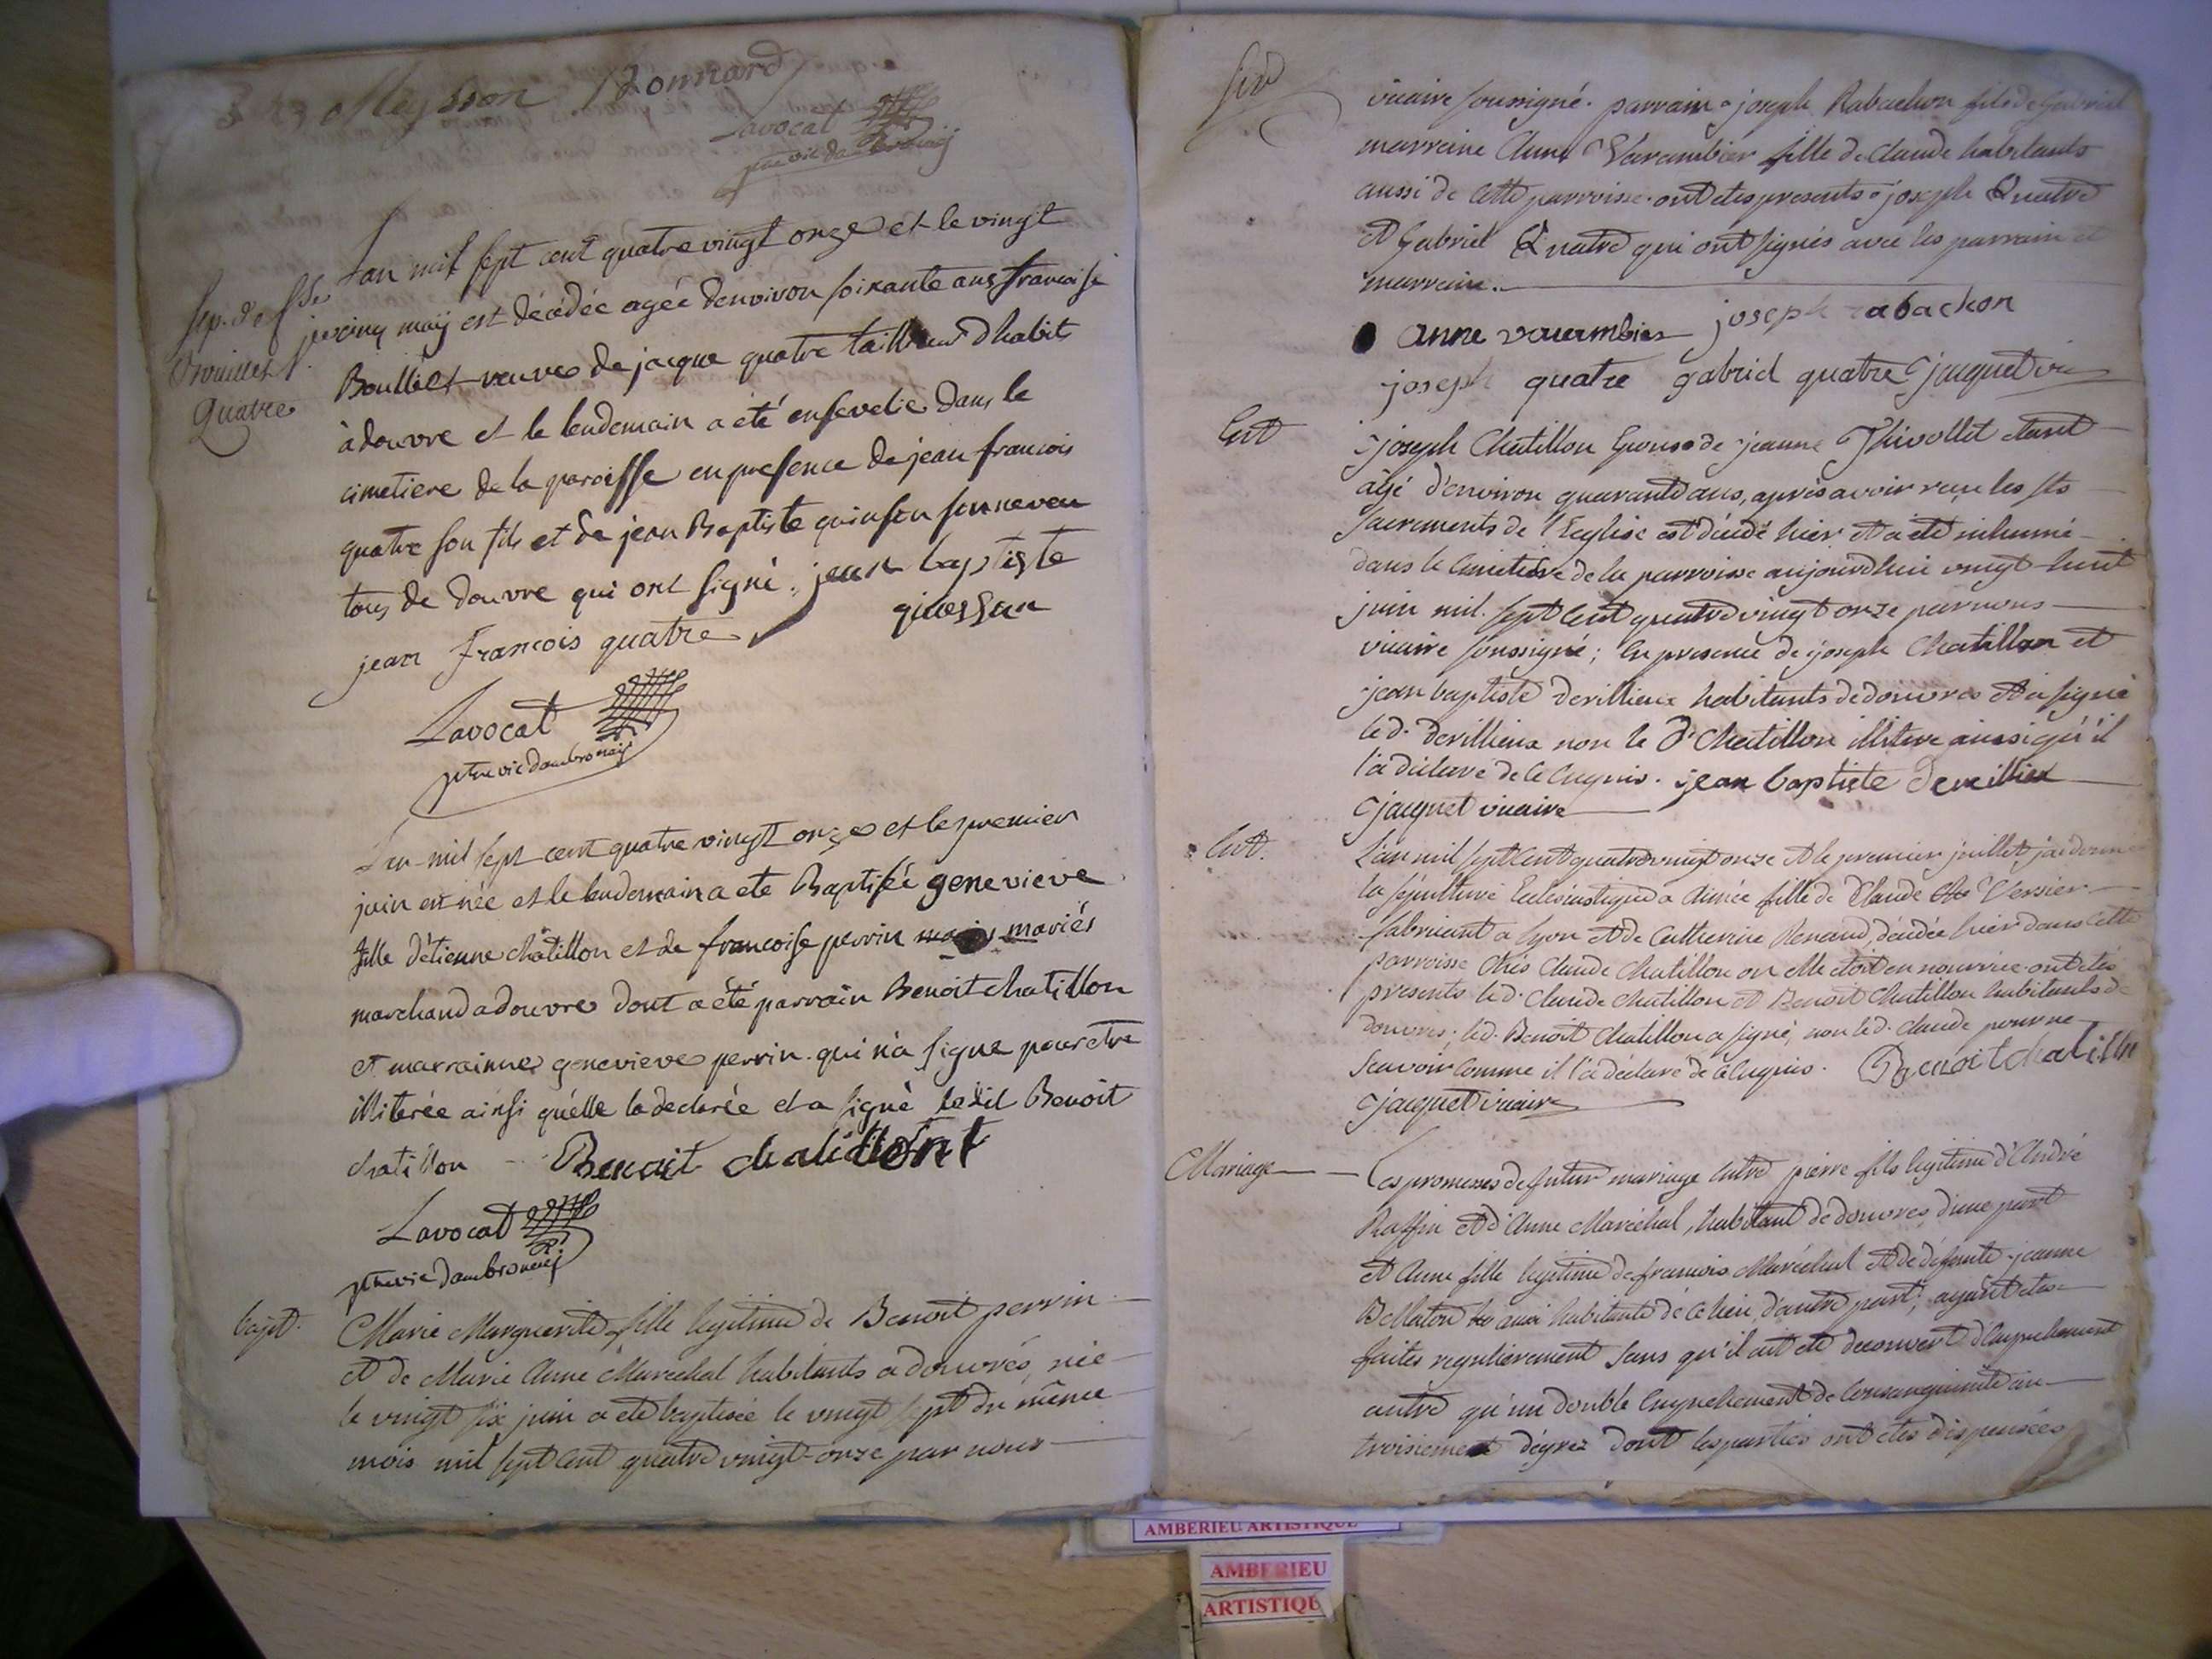 Meysson Bonnard
Lavocat
ptre vic dambronay
Lan mil sept cent quatre vingt onze et le vingt
cinq maÿ est décédée agée denviron soixante ans francoise
Bouillet veuve de jacque quatre tailleur dhabits
à douvre et le lendemain a été ensevelie dans le
cimetiere de la paroisse en presence de jean francois
quatre son fils et de jean Baptiste quinson son neveu
tous de douvre qui ont signé. jean baptiste
quesson
jean francois quatre
Lavocat
ptre vic dambronay
sep. de fse
Bouillet v.
Quatre
Lan mil sept cent quatre vingt onze et le premier
juin est née et le lendemain a ete Baptisée genevieve
fille détienne chatillon et de francoise perrin mariés
marchand a douvre dont a été parrain Benoit chatillon
et marrainne genevieve perrin qui n'a signe pour etre
illiterée ainsi quélle la declarée et a signé ledit Benoit
chatillon Benoit chatillont
Lavocat
ptre vic dambronay
bapt. Marie Marguerite fille legitime de Benoit perrin
et de Marie Anne Marechal habitants a douvres, née
le vingt six juin a eté baptisée le vingt sept du même
mois mil sept cent quatre vingt onze par nous
vicaire soussigné. parrain joseph Rabachon fils de Gabriel
marreine Anne Varambier fille de Claude habitants
aussi de cette parroisse. ont etes presents joseph Quatre
et Gabriel Quatre qui ont signés avec les parrain et
marreine.
anne varambier joseph rabachon
joseph quatre gabriel quatre jacquet vic
Ent joseph Chatillon Epoux de jeanne Thivollet etant
agé d'environ quarante ans, aprés avoir reçu les sts
sacrements de l'Eglise est décédé hier et a été inhumé
dans le cimetière de la parroisse aujourdhui vingt huit
juin mil sept cent quatre vingt onze par nous
vicaire soussigné; en presence de joseph Chatillon et
jean baptiste devillieux habitants de douvres et a signé
led. devillieux non le d. Chatillon illiteré ainsi qu'il
l'a déclaré de ce enquis. jean baptiste deveillieu
jacquet vicaire
Ent. L'an mil sept cent quatre vingt onze et le premier juillet jai donné
la sépulture Eclésiastique a Aimée fille de Claude Versier
fabricant a lyon et de Catherine Renaud, décédée hier dans cette
parroisse chés Claude Chatillon ou elle étoit en nourrice. ont etés
presents led. Claude Chatillon et Benoit Chatillon habitants de
douvres; led. Benoit Chatillon a signé, non led. claude pour ne
scavoir comme il l'a déclaré de ce enquis. Benoit chatillon
jacquet vicaire
Mariage Les promesses de futur mariage entre pierre fils legitime d'André
Raffin et d'Anne Maréchal, habitant de douvres, d'une part
et Anne fille legitime de francois Maréchal et de défunte jeanne
Bellaton aussi habitante de ce lieu, d'autre part; ayant étes
faites regulierement sans qu'il ait eté decouvert d'Empechement
autre qu'un double Empechement de Consanguinité au
troisieme dégrez dont les parties ont étes dispensées
AMBERIEU ARTISTIQUE
AMBERIEU
ARTISTIQUE